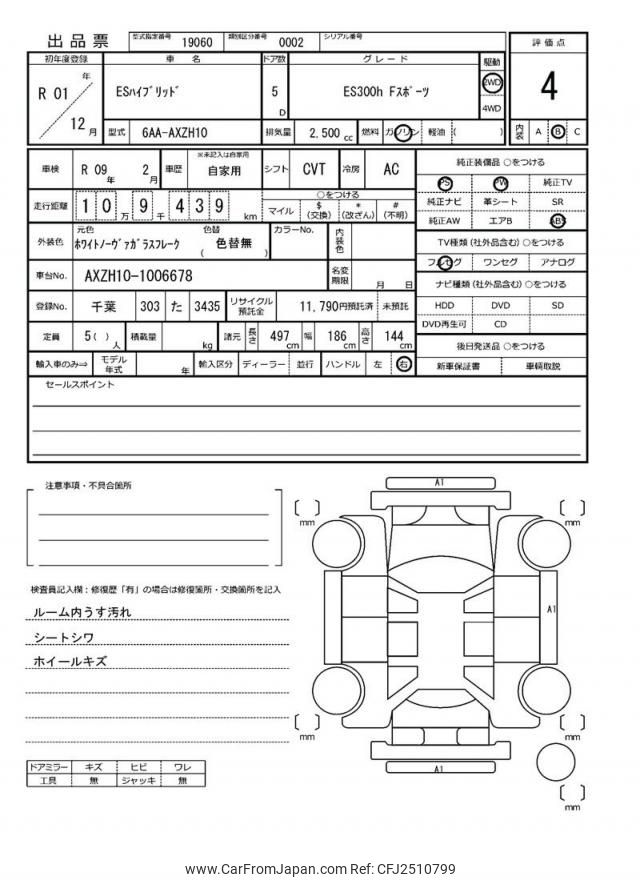 出品票 型式指定番号 19060 類別区分番号 0002 シリアル番号
初年度登録 車 名 ドア数 グレード 駆動 評 価 点
R 01 年 12 月 ESハイブリッド 5 D ES300h Fスポーツ 2WD 4WD 4
型式 6AA-AXZH10 排気量 2,500 cc 燃料 ガソリン 軽油 ( ) 内装 A B C
車検 R 09 年 2 月 車歴 ※未記入は自家用 自家用 シフト CVT 冷房 AC
走行距離 1 0 万 9 千 4 3 9 km ○をつける
マイル $ (交換) * (改ざん) # (不明)
外装色 元色 ホワイトノーヴァガラスフレーク 色替 ( 色替無 ) カラーNo. 内装色
車台No. AXZH10-1006678 名変期限 月 日
登録No. 千葉 303 た 3435 リサイクル預託金 11,790円預託済 未預託
定員 5 ( ) 人 積載量 kg 諸元 長さ 497 cm 幅 186 cm 高さ 144 cm
輸入車のみ⇒ モデル年式 年 輸入区分 ディーラー 並行 ハンドル 左 右
純正装備品 ○をつける
PS PW 純正TV
純正ナビ 革シート SR
純正AW エアB ABS
TV種類 (社外品含む) ○をつける
フルセグ ワンセグ アナログ
ナビ種類 (社外品含む) ○をつける
HDD DVD SD
DVD再生可 CD
後日発送品 ○をつける
新車保証書 車輌取説
セールスポイント
注意事項・不具合箇所
検査員記入欄：修復歴「有」の場合は修復箇所・交換箇所を記入
ルーム内うす汚れ
シートシワ
ホイールキズ
ドアミラー キズ ヒビ ワレ
工具 無 ジャッキ 無
A1
mm
mm
A1
mm
mm
A1
mm
www.CarFromJapan.com Ref: CFJ2510799